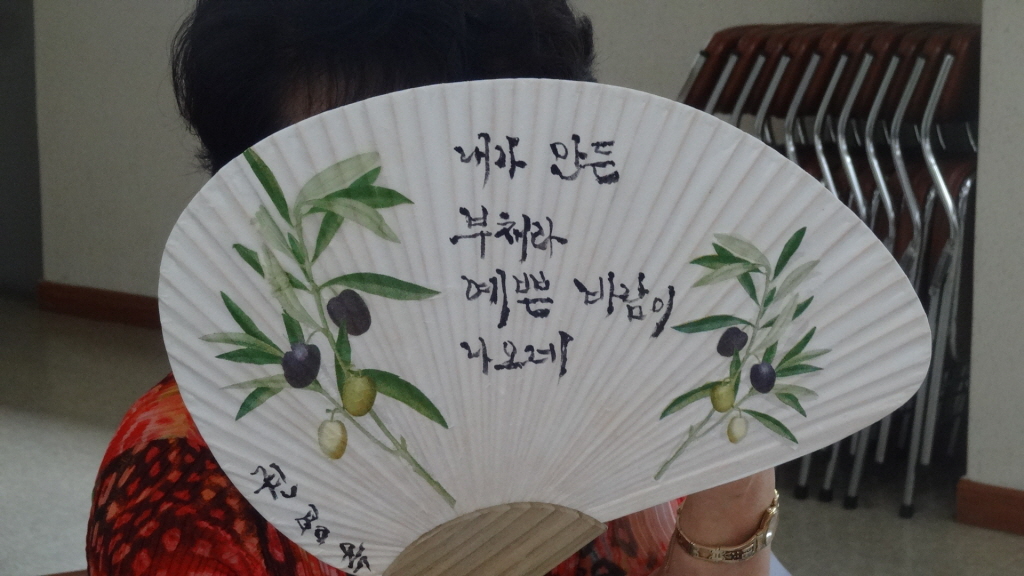 내가 만든
부채라
예쁜 바람이
나오네